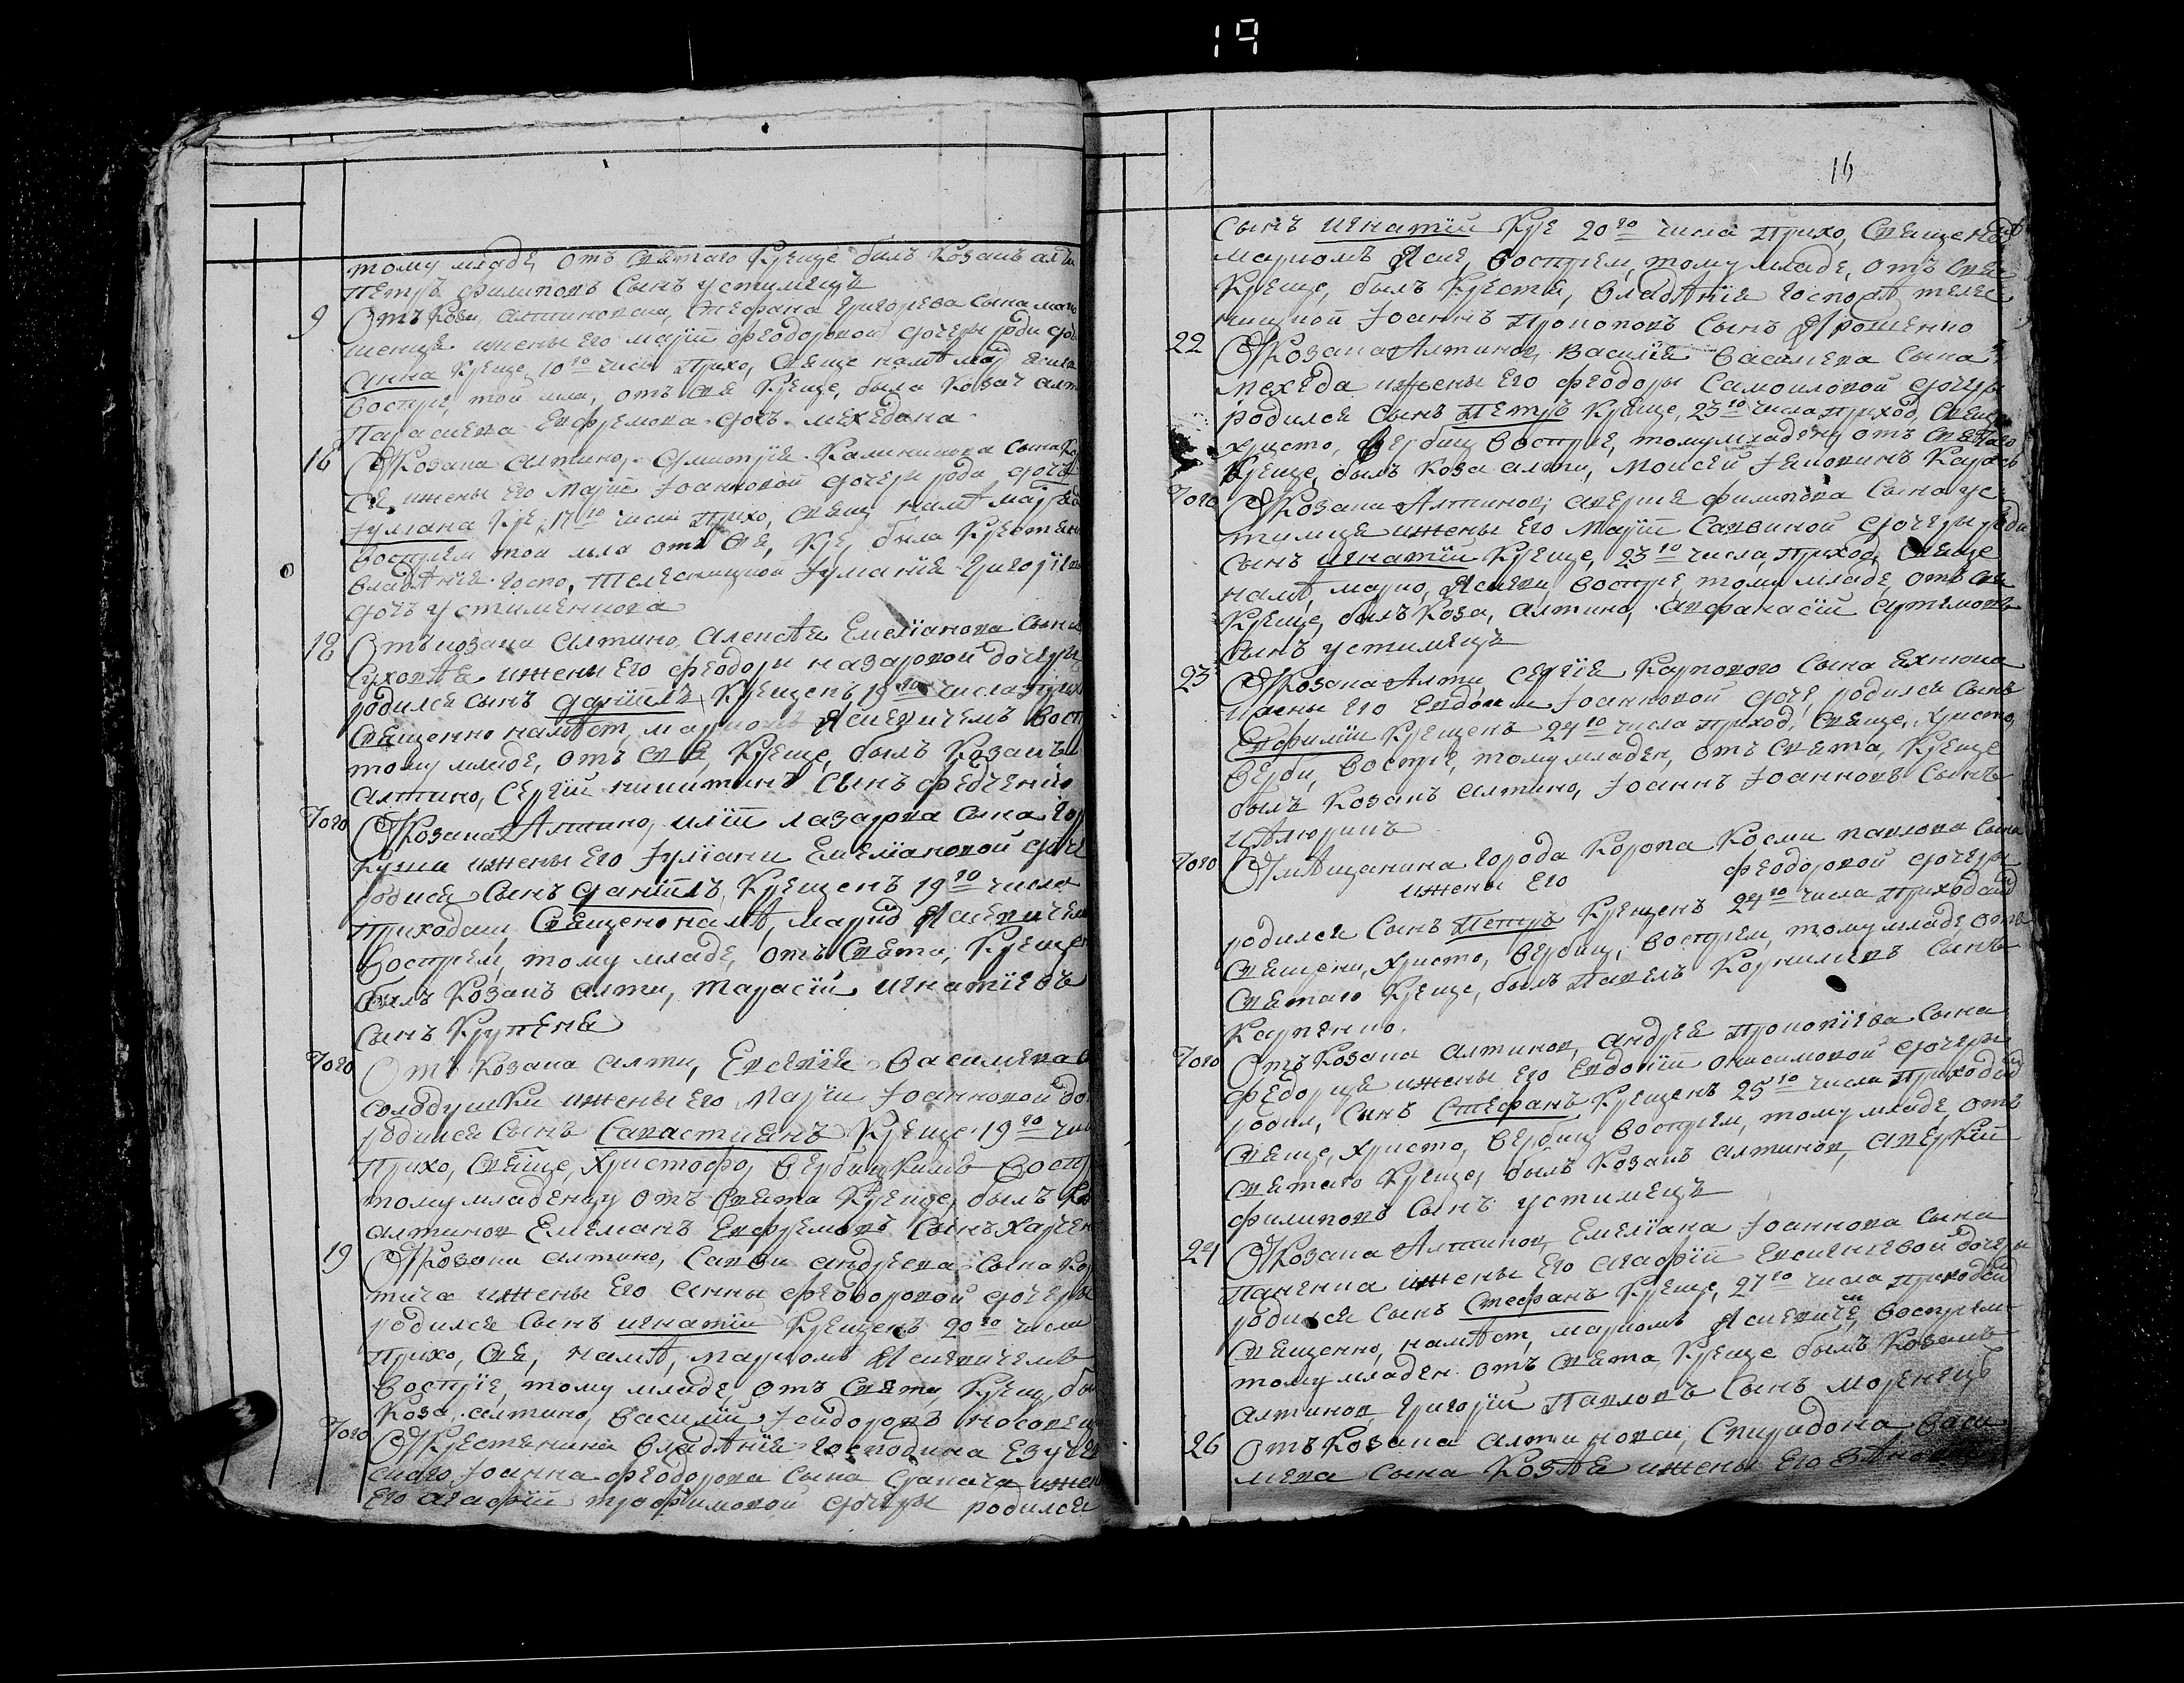 19
тому младе, отъ святаго Креще былъ Козакъ алти
Петръ филиповъ Сынъ устимецъ
9 Отъ Коза, алтиновка, Стефана григорева сына мак
шенца ижены Его маріи феодоровой дочеры роди доч
Анна Креще, 10го числа Прихо, Свяще намѣ
воспри, той мла, отъ свя Креще, была Козач алт
Параскева Ефремова дочъ мехедана
16 От Козака алтино, дмитрія Калиникова Сына
ижены Его Маріи Iоанновой дочери роди дочъ
Iулiана Кре, 17го числа Прихо, свящ намѣ
восприем той мла отъ свя, Кре, была Крестян
владѣнія госпо, Телесницкой Iулианiя Григорiева
дочъ устименкова
18 Отъ козака алтино, алексѣя Емелiанова Сына
Суховѣя ижены Его феодоры назаровой дочеры
родился сынъ Данiилъ Крещенъ 19го числа прихо
Священно намѣст, марко Ясневичемъ Восп
тому младе, отъ свя, Креще, былъ Козакъ
алтино, Сергiй никитинъ Сынъ федченко
Того От Козака Алтино, илiи лазарева сына гор
куши ижены Его Iулiани Емелiановой доче
родися Сынъ Данiилъ, Крещенъ 19го числа
приходски, Священонамѣ, марко Ясневичем
Восприем, тому младе, отъ Свята, Креще
былъ Козакъ алти, тарасiй игнатiевъ
Сынъ Крупеня
Того Отъ Козака алти, Евсевiя Василева
солодушки ижены Его Марiи Iоанновой до
родился Сынъ Савастиянъ Креще 19го чи
Прихо, Свяще, Христофо, Вербицкимъ Воспр
тому младенцу отъ Свята Креще, былъ
алтинов Емелианъ Ефремовъ Сынъ харчен
19 От Козака алтино, Савви андреева Сына Ко
тича ижены Его анны феодоровой дочеры
родился Сынъ игнатiй Крещенъ 20го числа
Прихо, Свя, намѣ, маркомъ Ясневичемъ
воспрiе, тому младе, отъ Свята, Крещ, бы
Коза алтино, Василiй Iсидоровъ носовец
Того От Крестянина владѣнiя господина Езуче
скаго Iоанна феодорова Сына ижен
Его агафiи трофимовой дочеры родился
16
Сынъ игнатiй Кре 20го числа прихо, Священо
маркомъ Ясне, Восприем, тому младе, отъ Свя
Креще, былъ Крестя, владѣнiя господ телес
ницкой Iоаннъ Прокоповъ Сынъ Ярошенко
22 От Козака Алтинов, Василiя василева Сына
мехеда ижены Его феодоры Самоиловой дочеры
родился Сынъ Петръ Креще, 23го числа приход, Свящ
христо, Вербиц воспрiе, тому младену отъ Святаго
Креще, былъ Коза алти, моисей Iелисеинъ Карась
Того От Козака Алтинов, аверкiя филипова Сына ус
тимца ижены Его Марiи Саввиной дочери роди
Сынъ игнатiй Креще, 23го числа, приход, Свяще
намѣ, марко, Ясневи, Воспрiе, тому младе, отъ Свя
Креще, былъ Коза, алтино, афанасiй артемовъ
Сынъ устимецъ
23 От Козака Алти, Сергiя Карпового Сына Яхнюка
ижены Его Евдокiи Iоанновой доче, родился Сынъ
Евфимiй Крещенъ 24го числа приход, Свяще, Христо,
Верби, Воспрiе, тому младен, отъ Свята, Креще
былъ Козакъ алтино, Iоаннъ Iоанновъ Сынъ
Цѣлюрикъ
Того От мѣщанина города Коропа Косми павлова Сына
ижены Его феодоровой дочеры
родился Сынъ Петръ Крещенъ 24го числа приход
Священи, христо, Вербиц, Восприем, тому младе, отъ
Святаго Креще, былъ Павелъ Корнилиевъ Сынъ
Карпенко.
Того Отъ Козака алтинов, андрея Прокопiева Сына
федорца ижены Его Евдокiи онисимовой дочеры
родил, Сынъ Стефанъ Крещенъ 25го числа приход
Свяще, христо, Вербиц, Восприем, тому младе, отъ
Святаго Креще, былъ Козакъ алтинов, аверкiй
филиповъ Сынъ устимецъ
24 От Козака Алтинов, Емелiана Iоаннова Сына
Паненка ижены Его агафiи Евсиевой дочеры
родился Сынъ Стефанъ Креще, 27го числа приход
Священно, намѣст, маркомъ Ясневиче, восприем
тому младен отъ Свята Креще былъ Козакъ
алтинов, григорiй Павловъ Сынъ моренецъ
26 Отъ Козака алтиновки, Спиридона Васи
лева Сына Козѣя ижены Его